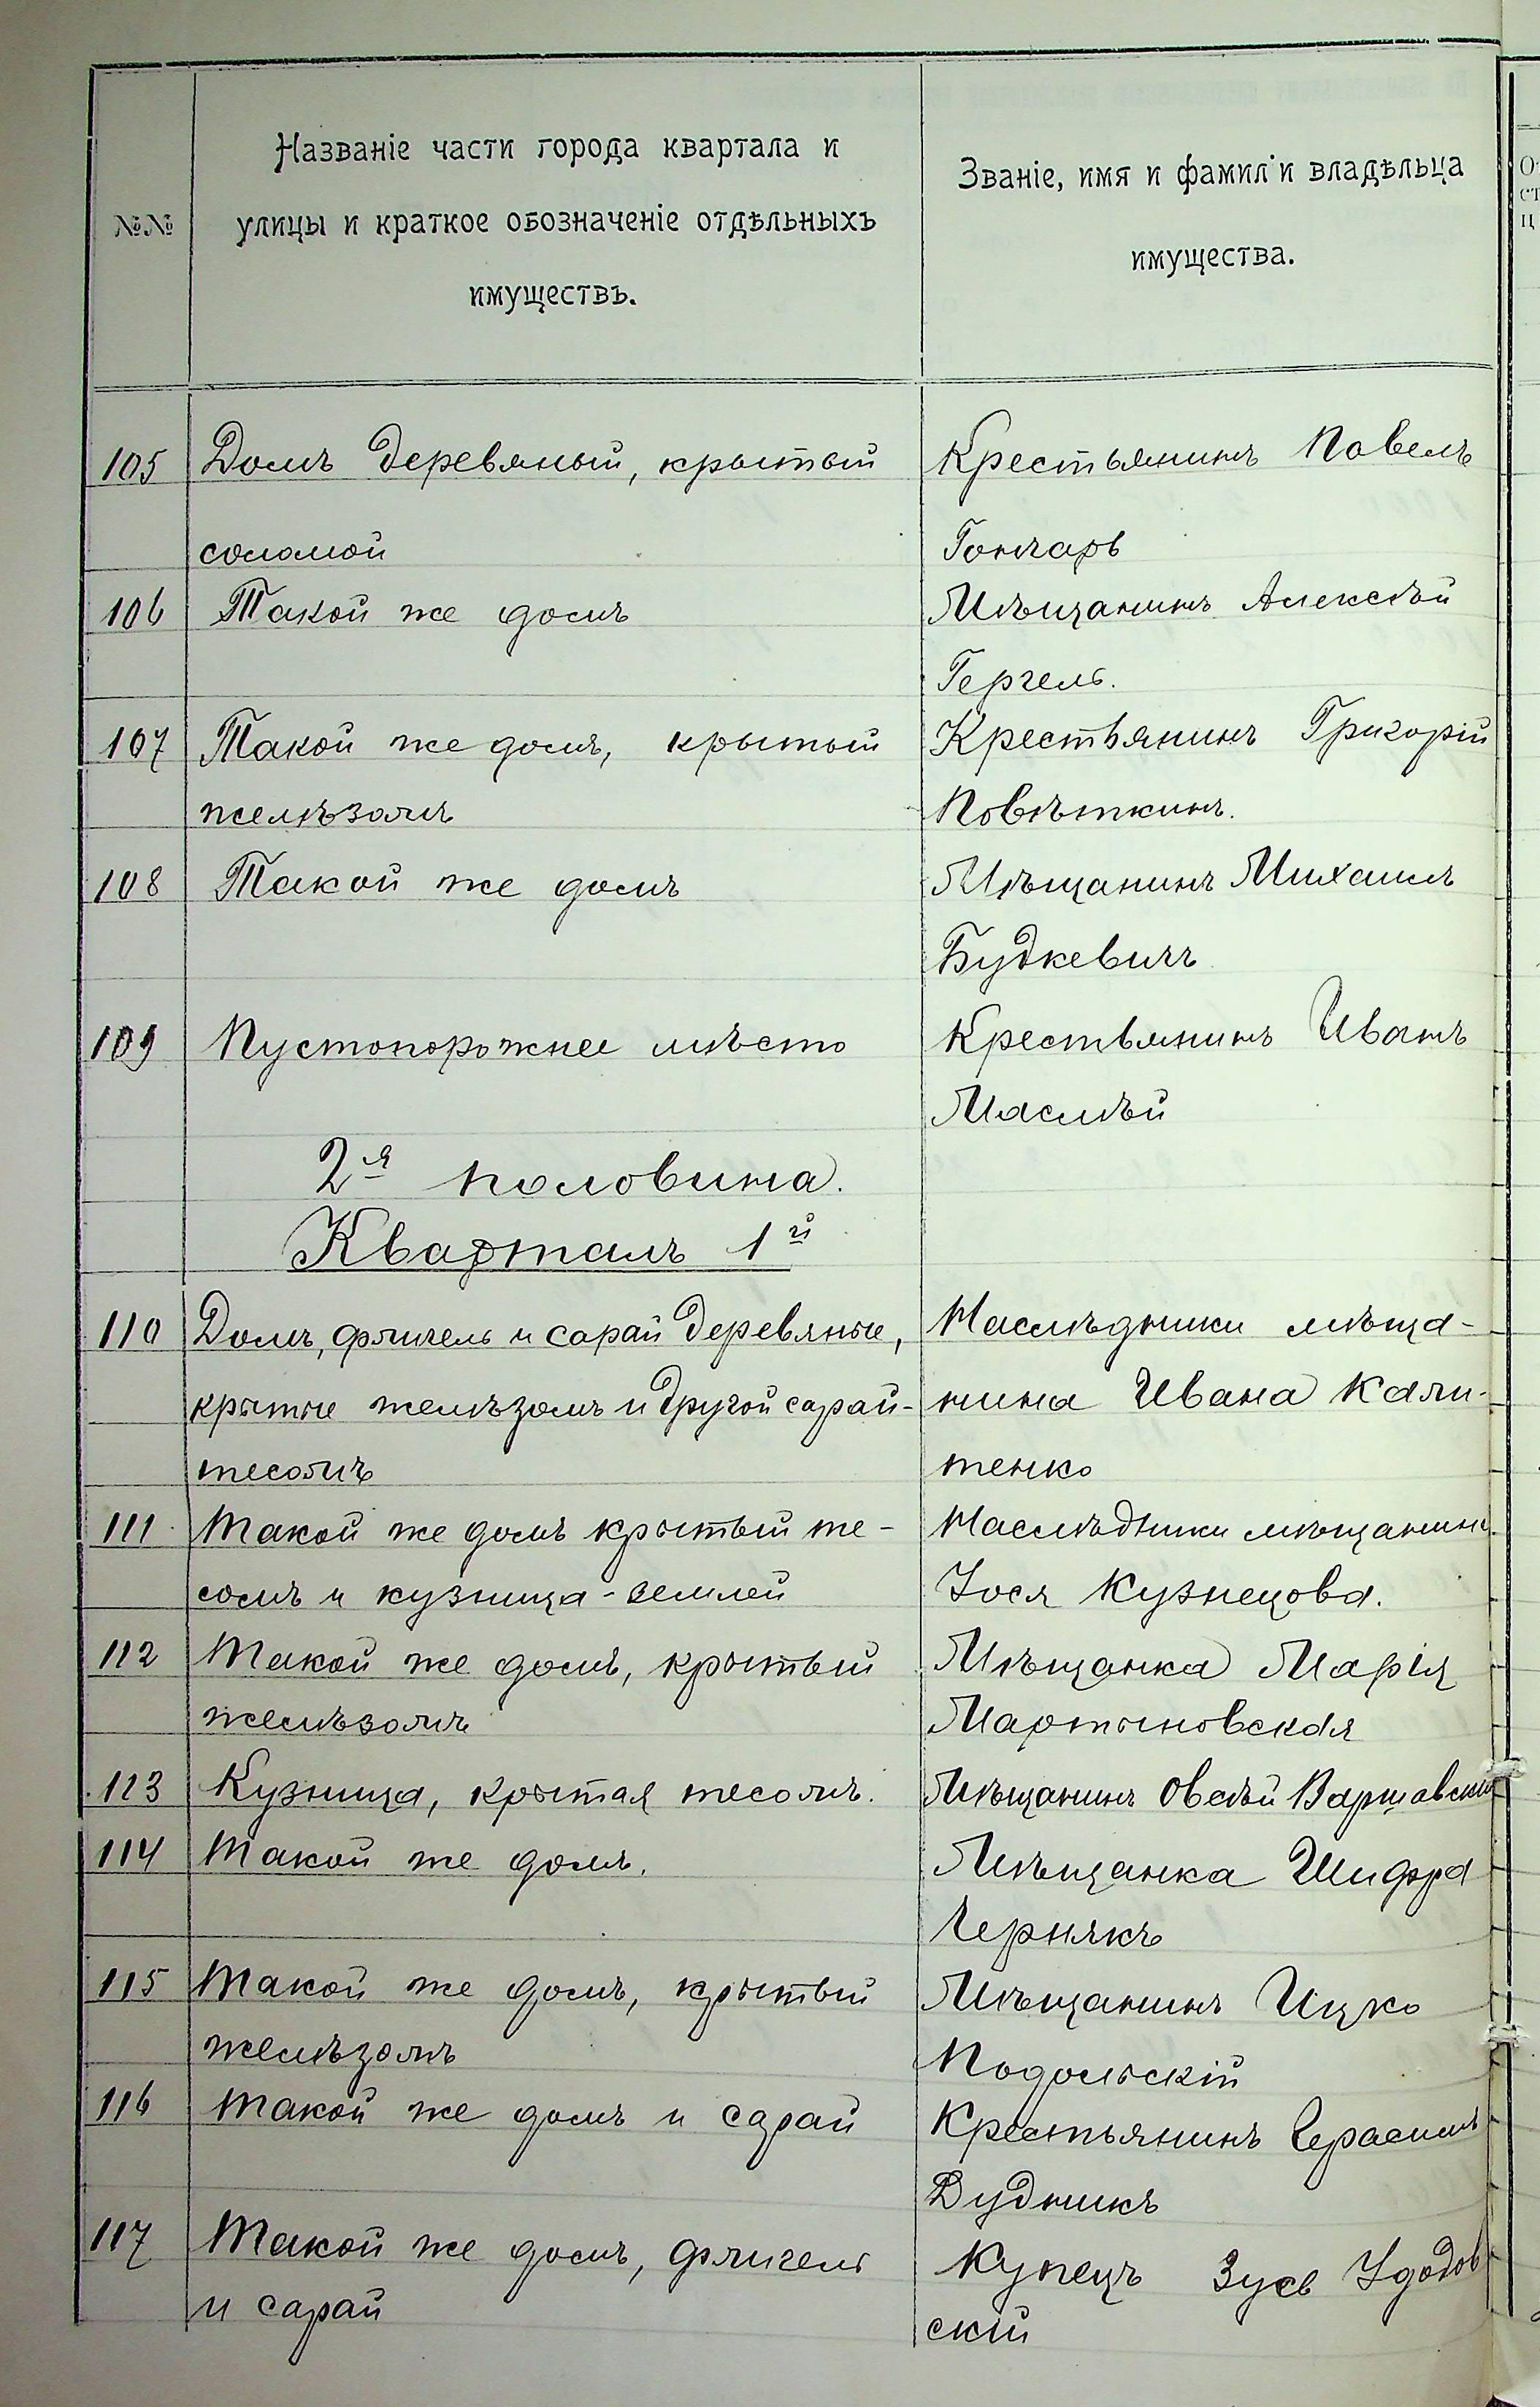 №№
Названіе части города квартала и
улицы и краткое обозначеніе отдѣльныхъ
имуществъ.
Званіе, имя и фамил и владѣльца
имущества.
105 Домъ деревяный, крытый Крестьянинъ Павелъ
соломой Гончаръ
106 Такой же домъ Мѣщанинъ Алексѣй
Гергель.
107 Такой же домъ, крытый Крестьянинъ Григорій
желѣзомъ Повѣткинъ.
108 Такой же домъ Мѣщанинъ Михаилъ
Будкевичъ
109 Пустопорожнее мѣсто Крестьянинъ Иванъ
Маслѣй
2я половина.
Кварталъ 1й
110 Домъ, флигель и сарай деревяные, Наслѣдники мѣща-
крытые желѣзомъ и другой сарай- нина Ивана Кали-
тесомъ тенко
111 Такой же домъ крытый те- Наслѣдники мѣщанина
сомъ и кузница - землей Іося Кузнецова.
112 Такой же домъ, крытый Мѣщанка Марія
желѣзомъ Мартыновская
113 Кузница, крытая тесомъ. Мѣщанинъ Овсѣй Варшавскій
114 Такой же домъ. Мѣщанка Шифра
Чернякъ
115 Такой же домъ, крытый Мѣщанинъ Ицко
желѣзомъ Подольскій
116 Такой же домъ и сарай Крестьянинъ Герасимъ
Дудникъ
117 Такой же домъ, флигель Купецъ Зусь Удодов
и сарай скій